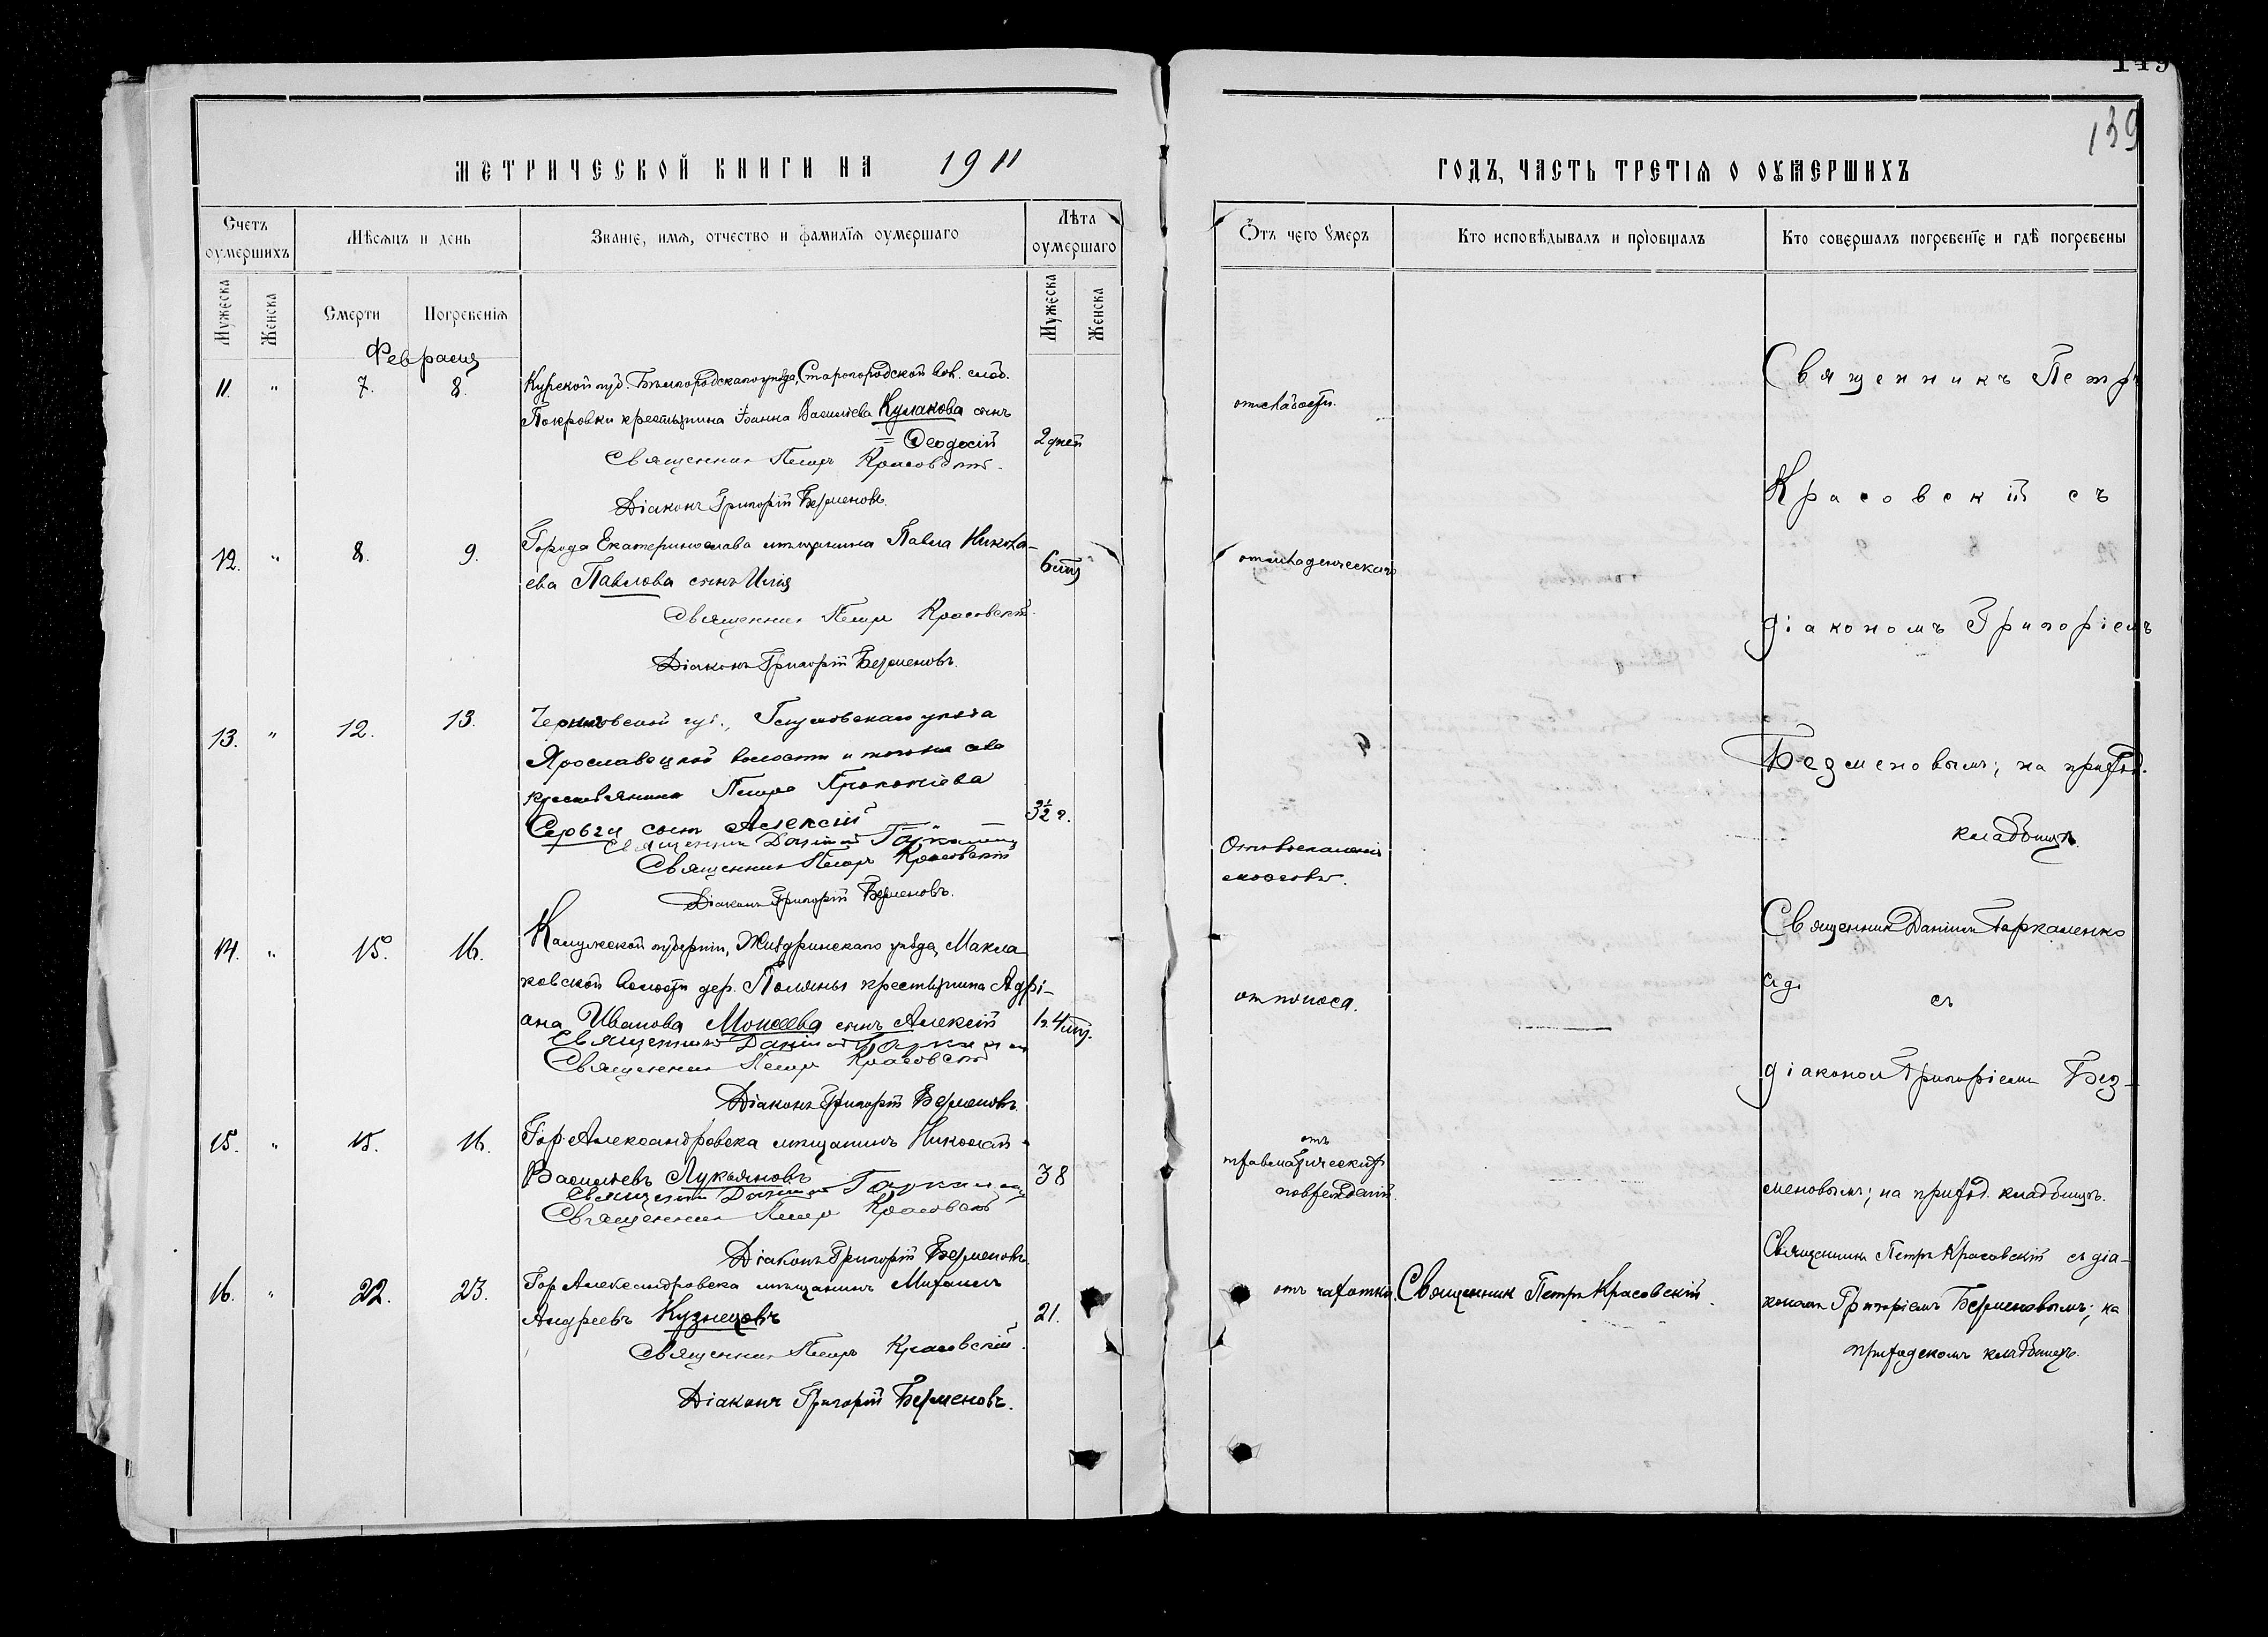 149
139
МЕТРИЧЕСКОЙ КНИГИ НА 1911
ГОДЪ, ЧАСТЬ ТРЕТІЯ О ОУМЕРШИХЪ
Счетъ оумершихъ
Мѣсяцъ и день
Званіе, имя, отчество и фамилія оумершаго
Лѣта оумершаго
Ѿтъ чего умеръ
Кто исповѣдывалъ и пріобщалъ
Кто совершалъ погребеніе и гдѣ погребены
Мужеска
Женска
Смерти
Погребенія
Мужеска
Женска
Февраля
11. " 7. 8. Курской губ. Бѣлгородскаго уѣзда, Старогородской вол. слоб.
Покровки крестьянина Іоанна Васильева Кулакова сынъ
= Ѳеодосій 2 дней
отъ слабости.
Священникъ Петръ Красовскій.
Діаконъ Григорій Безменовъ.
Священникъ Петръ
Красовскій съ
діакономъ Григоріемъ
Безменовымъ; на приход.
кладбищѣ.
12. " 8. 9. Города Екатеринослава мѣщанина Павла Никола-
ева Павлова сынъ Илія
отъ младенческаго
Священникъ Петръ Красовскій.
Діаконъ Григорій Безменовъ.
13. " 12. 13. Черниговской губ., Глуховскаго уѣзда
Ярославецкой волости и того же села
крестьянина Петра Прокопіева
Сербги сынъ Алексій 3½ г.
Отъ воспаленія
мозговъ.
Священникъ Даніилъ
Священникъ Петръ Красовскій
Діаконъ Григорій Безменовъ.
Священникъ Даніилъ
съ
діакономъ Григоріемъ Без-
меновымъ; на приход. кладбищѣ.
14. " 15. 16. Калужской губерніи, Жиздринскаго уѣзда, Макла-
ковской волости дер. Поляны крестьянина Адрі-
ана Иванова Моисеева сынъ Алексій 1 г. 4 мѣс.
отъ поноса.
Священникъ Даніилъ
Священникъ Петръ Красовскій
Діаконъ Григорій Безменовъ.
15. " 15. 16. Гор. Александровска мѣщанинъ Николай
Васильевъ Лукьяновъ 38
отъ
травматическихъ
поврежденій.
Священникъ Даніилъ
Священникъ Петръ Красовскій
Діаконъ Григорій Безменовъ.
16. " 22. 23. Гор. Александровска мѣщанинъ Михаилъ
Андреевъ Кузнецовъ 21.
отъ чахотки. Священникъ Петръ Красовскій.
Священникъ Петръ Красовскій.
Діаконъ Григорій Безменовъ.
Священникъ Петръ Красовскій съ діа-
кономъ Григоріемъ Безменовымъ; на
приходскомъ кладбищѣ.